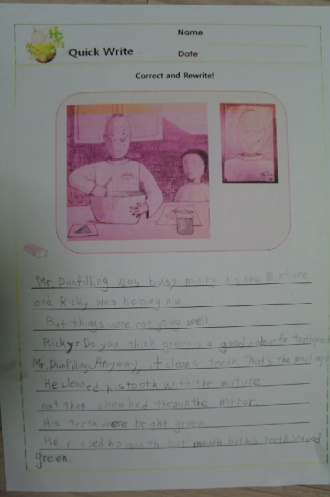 Name
Quick Write
Date
Correct and Rewrite!
Mr. Dunfilling was busy mixing his new mixture
and Ricky was helping him.
But things were not going well.
Ricky: Do you think green is a good colour for
Mr. Dunfilling: Anyway, it cleans teeth. That's the most
He cleaned his tooth with the mixture
checked them in the mirror.
His teeth were bright green.
He rinsed his mouth but his teeth stayed
green.